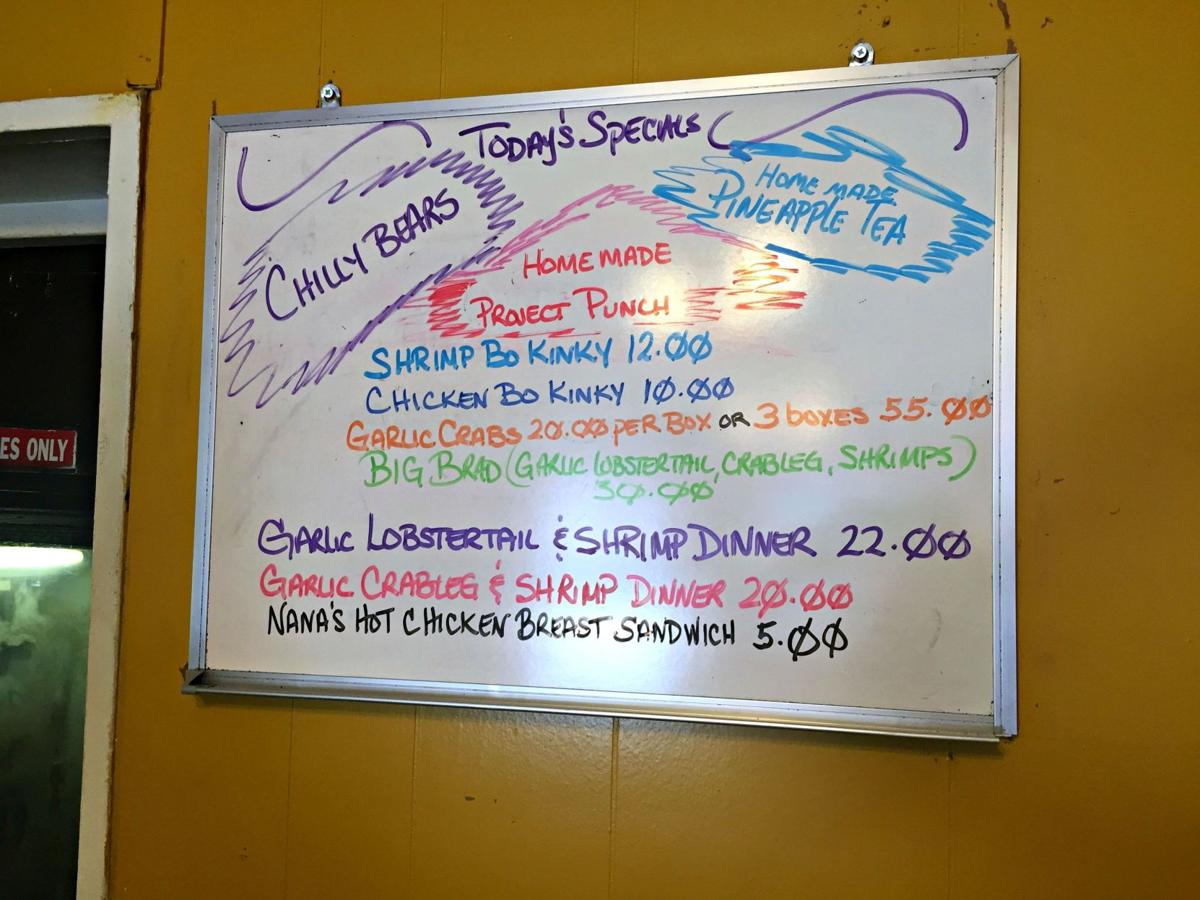 Today's Specials
CHILLY BEARS
HOME MADE
PINEAPPLE TEA
HOME MADE
PROJECT PUNCH
SHRIMP BO KINKY 12.00
CHICKEN BO KINKY 10.00
GARLIC CRABS 20.00 PER BOX OR 3 BOXES 55.00
BIG BRAD (GARLIC LOBSTERTAIL, CRABLEG, SHRIMPS)
30.00
GARLIC LOBSTERTAIL & SHRIMP DINNER 22.00
GARLIC CRABLEG & SHRIMP DINNER 20.00
NANA'S HOT CHICKEN BREAST SANDWICH 5.00
ES ONLY